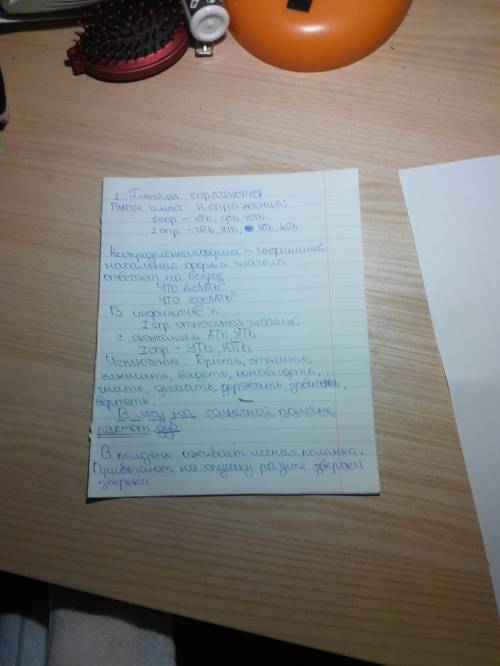 1. Глаголы спрягаются
Глагол имеет 2 спряжения:
1 спр - еть, уть, ють
1 спр - ать, ять, ить, ыть
Неопределённая форма - инфинитив
начальная форма глагола
отвечает на вопрос
что делАТЬ?
что сделАТЬ?
В инфинитиве к
I спр. относятся глаголы:
с окончанием АТЬ, ЯТЬ
I спр - УТЬ, ЮТЬ
Исключения: Брить, стелить,
слышать, видеть, ненавидеть,
гнать, дышать, держать, зависеть,
вертеть
В лесу на солнечной полянке
растёт дуб
В полдень оживает лесная полянка.
Прибегают на опушку разные зверьки
зверьки